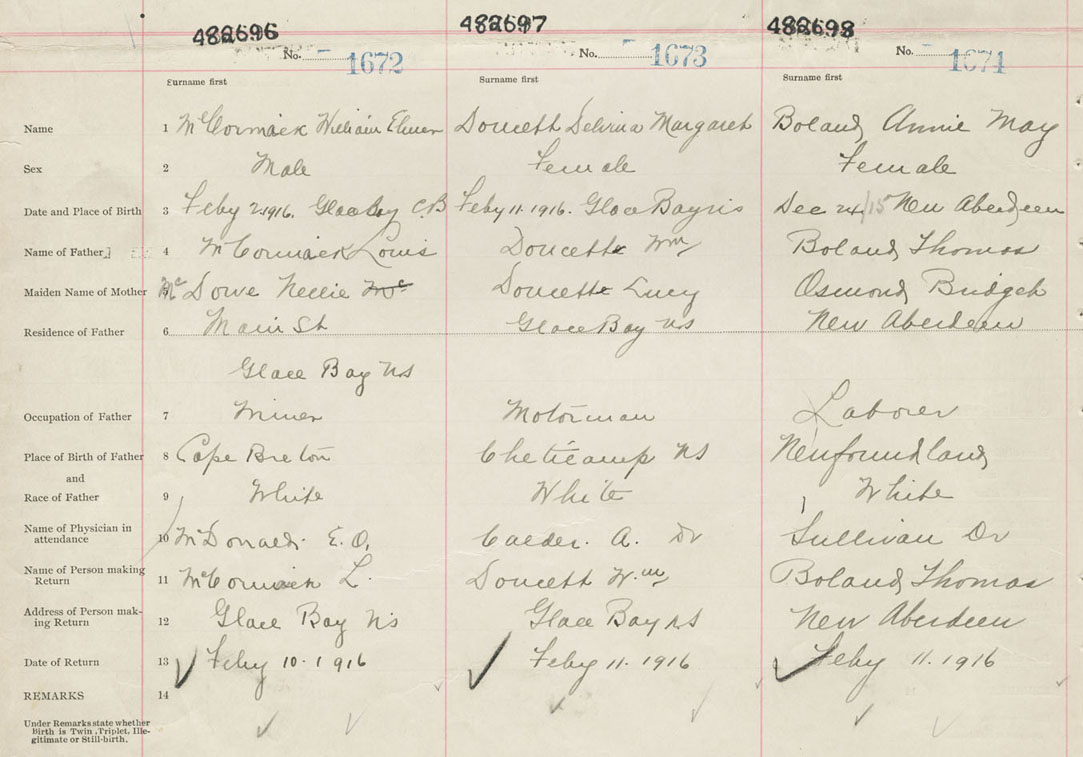 482696 482697 482698
No. 1672 No. 1673 No. 1674
Surname first Surname first Surname first
Name 1 McCormack William Elmer Doucett Delvina Margaret Boland Annie May
Sex 2 Male Female Female
Date and Place of Birth 3 Feby 2. 1916. Glace Bay C.B Feby 11. 1916. Glace Bay NS Dec 24/15 New Aberdeen
Name of Father 4 McCormack Louis Doucette Wm Boland Thomas
Maiden Name of Mother 5 Mc Dowe Nellie Mc Doucette Lucy Osmond Bridget
Residence of Father 6 Main St Glace Bay NS New Aberdeen
Glace Bay NS
Occupation of Father 7 Miner Motorman Laborer
Place of Birth of Father 8 Cape Breton Cheticamp NS Newfoundland
and
Race of Father 9 White White White
Name of Physician in
attendance 10 McDonald. E. O. Calder. A. Dr Sullivan Dr
Name of Person making
Return 11 McCormack L. Doucett Wm Boland Thomas
Address of Person mak-
ing Return 12 Glace Bay NS Glace Bay NS New Aberdeen
Date of Return 13 Feby 10. 1916 Feby 11. 1916 Feby 11. 1916
REMARKS 14
Under Remarks state whether
Birth is Twin, Triplet, Ille-
gitimate or Still-birth.